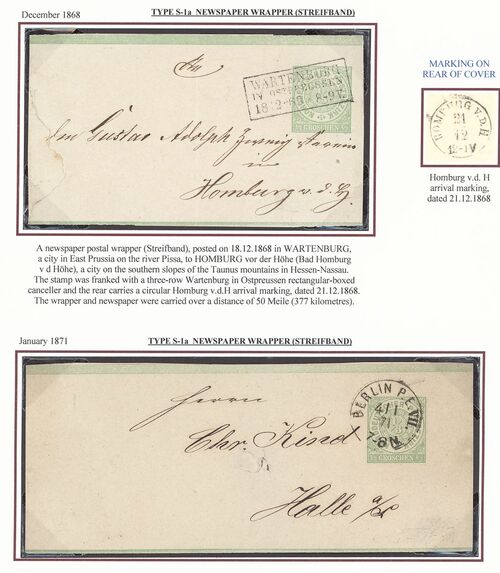 December 1868
TYPE S-1a NEWSPAPER WRAPPER (STREIFBAND)
WARTENBURG
IN OSTPREUSSEN
GROSCHEN
den Gustav Adolph Zweig Verein
in
Homburg v. d. H.
MARKING ON
REAR OF COVER
HOMBURG V.D.H.
21
12
Homburg v.d. H
arrival marking,
dated 21.12.1868
A newspaper postal wrapper (Streifband), posted on 18.12.1868 in WARTENBURG,
a city in East Prussia on the river Pissa, to HOMBURG vor der Höhe (Bad Homburg
v d Höhe), a city on the southern slopes of the Taunus mountains in Hessen-Nassau.
The stamp was franked with a three-row Wartenburg in Ostpreussen rectangular-boxed
canceller and the rear carries a circular Homburg v.d.H arrival marking, dated 21.12.1868.
The wrapper and newspaper were carried over a distance of 50 Meile (377 kilometres).
January 1871
TYPE S-1a NEWSPAPER WRAPPER (STREIFBAND)
BERLIN P.E.VII.
4/1
71
8 N
GROSCHEN
Herrn
Chr. Kind
Halle a/S